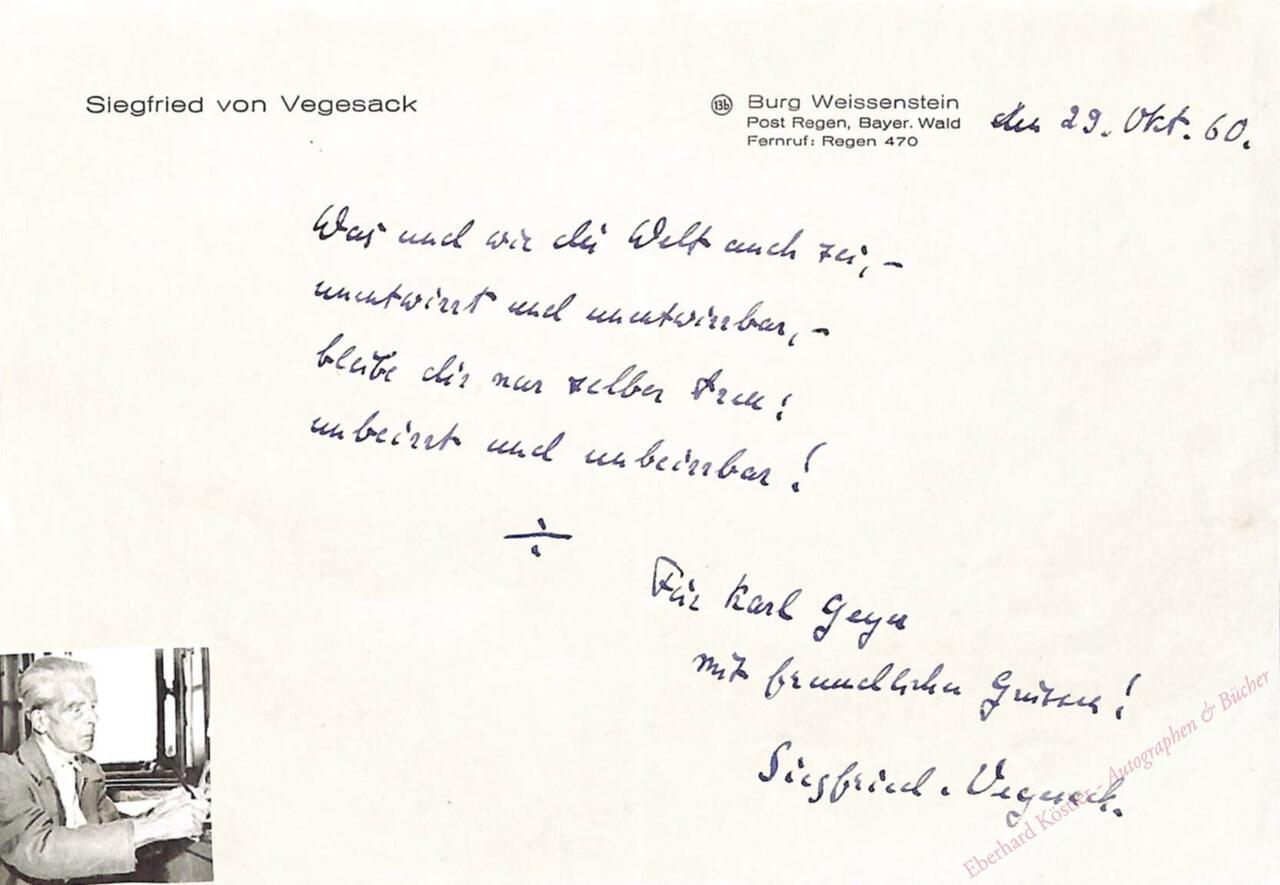 Siegfried von Vegesack
13b Burg Weissenstein
Post Regen, Bayer. Wald
Fernruf: Regen 470
den 29. Okt. 60.
Was und wie die Welt auch sei, –
unentwirrt und unentwirrbar, –
bleibe dir nur selber treu:
unbeirrt und unbeirrbar!
Für Karl Geyer
mit freundlichen Grüssen!
Siegfried v. Vegesack.
Eberhard Köstler - Autographen & Bücher